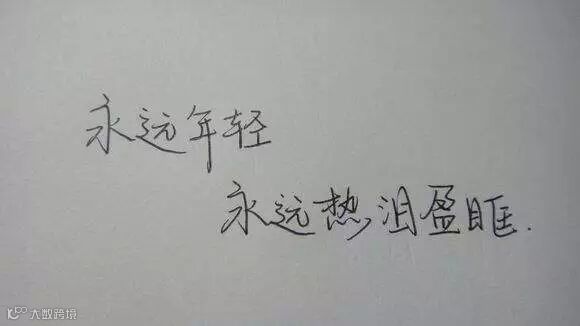 永远年轻
永远热泪盈眶.
大数跨境